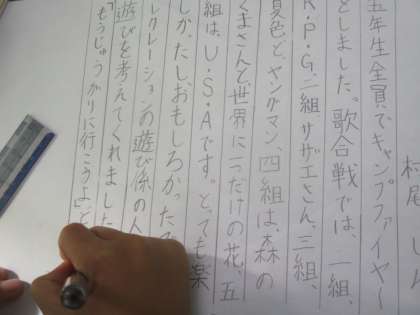 五年生全員でキャンプファイヤー
としました。歌合戦では、一組、
R・P・G、二組、サザエさん、三組、
夏色と、ヤングマン、四組は、森の
くまさんと世界に一つだけの花、五
組は、U・S・Aです。とっても楽
しかたしおもしろかったで
レクレーションの遊び係の人
遊びを考えてくれました
「もうじゅうがりに行こうよ」